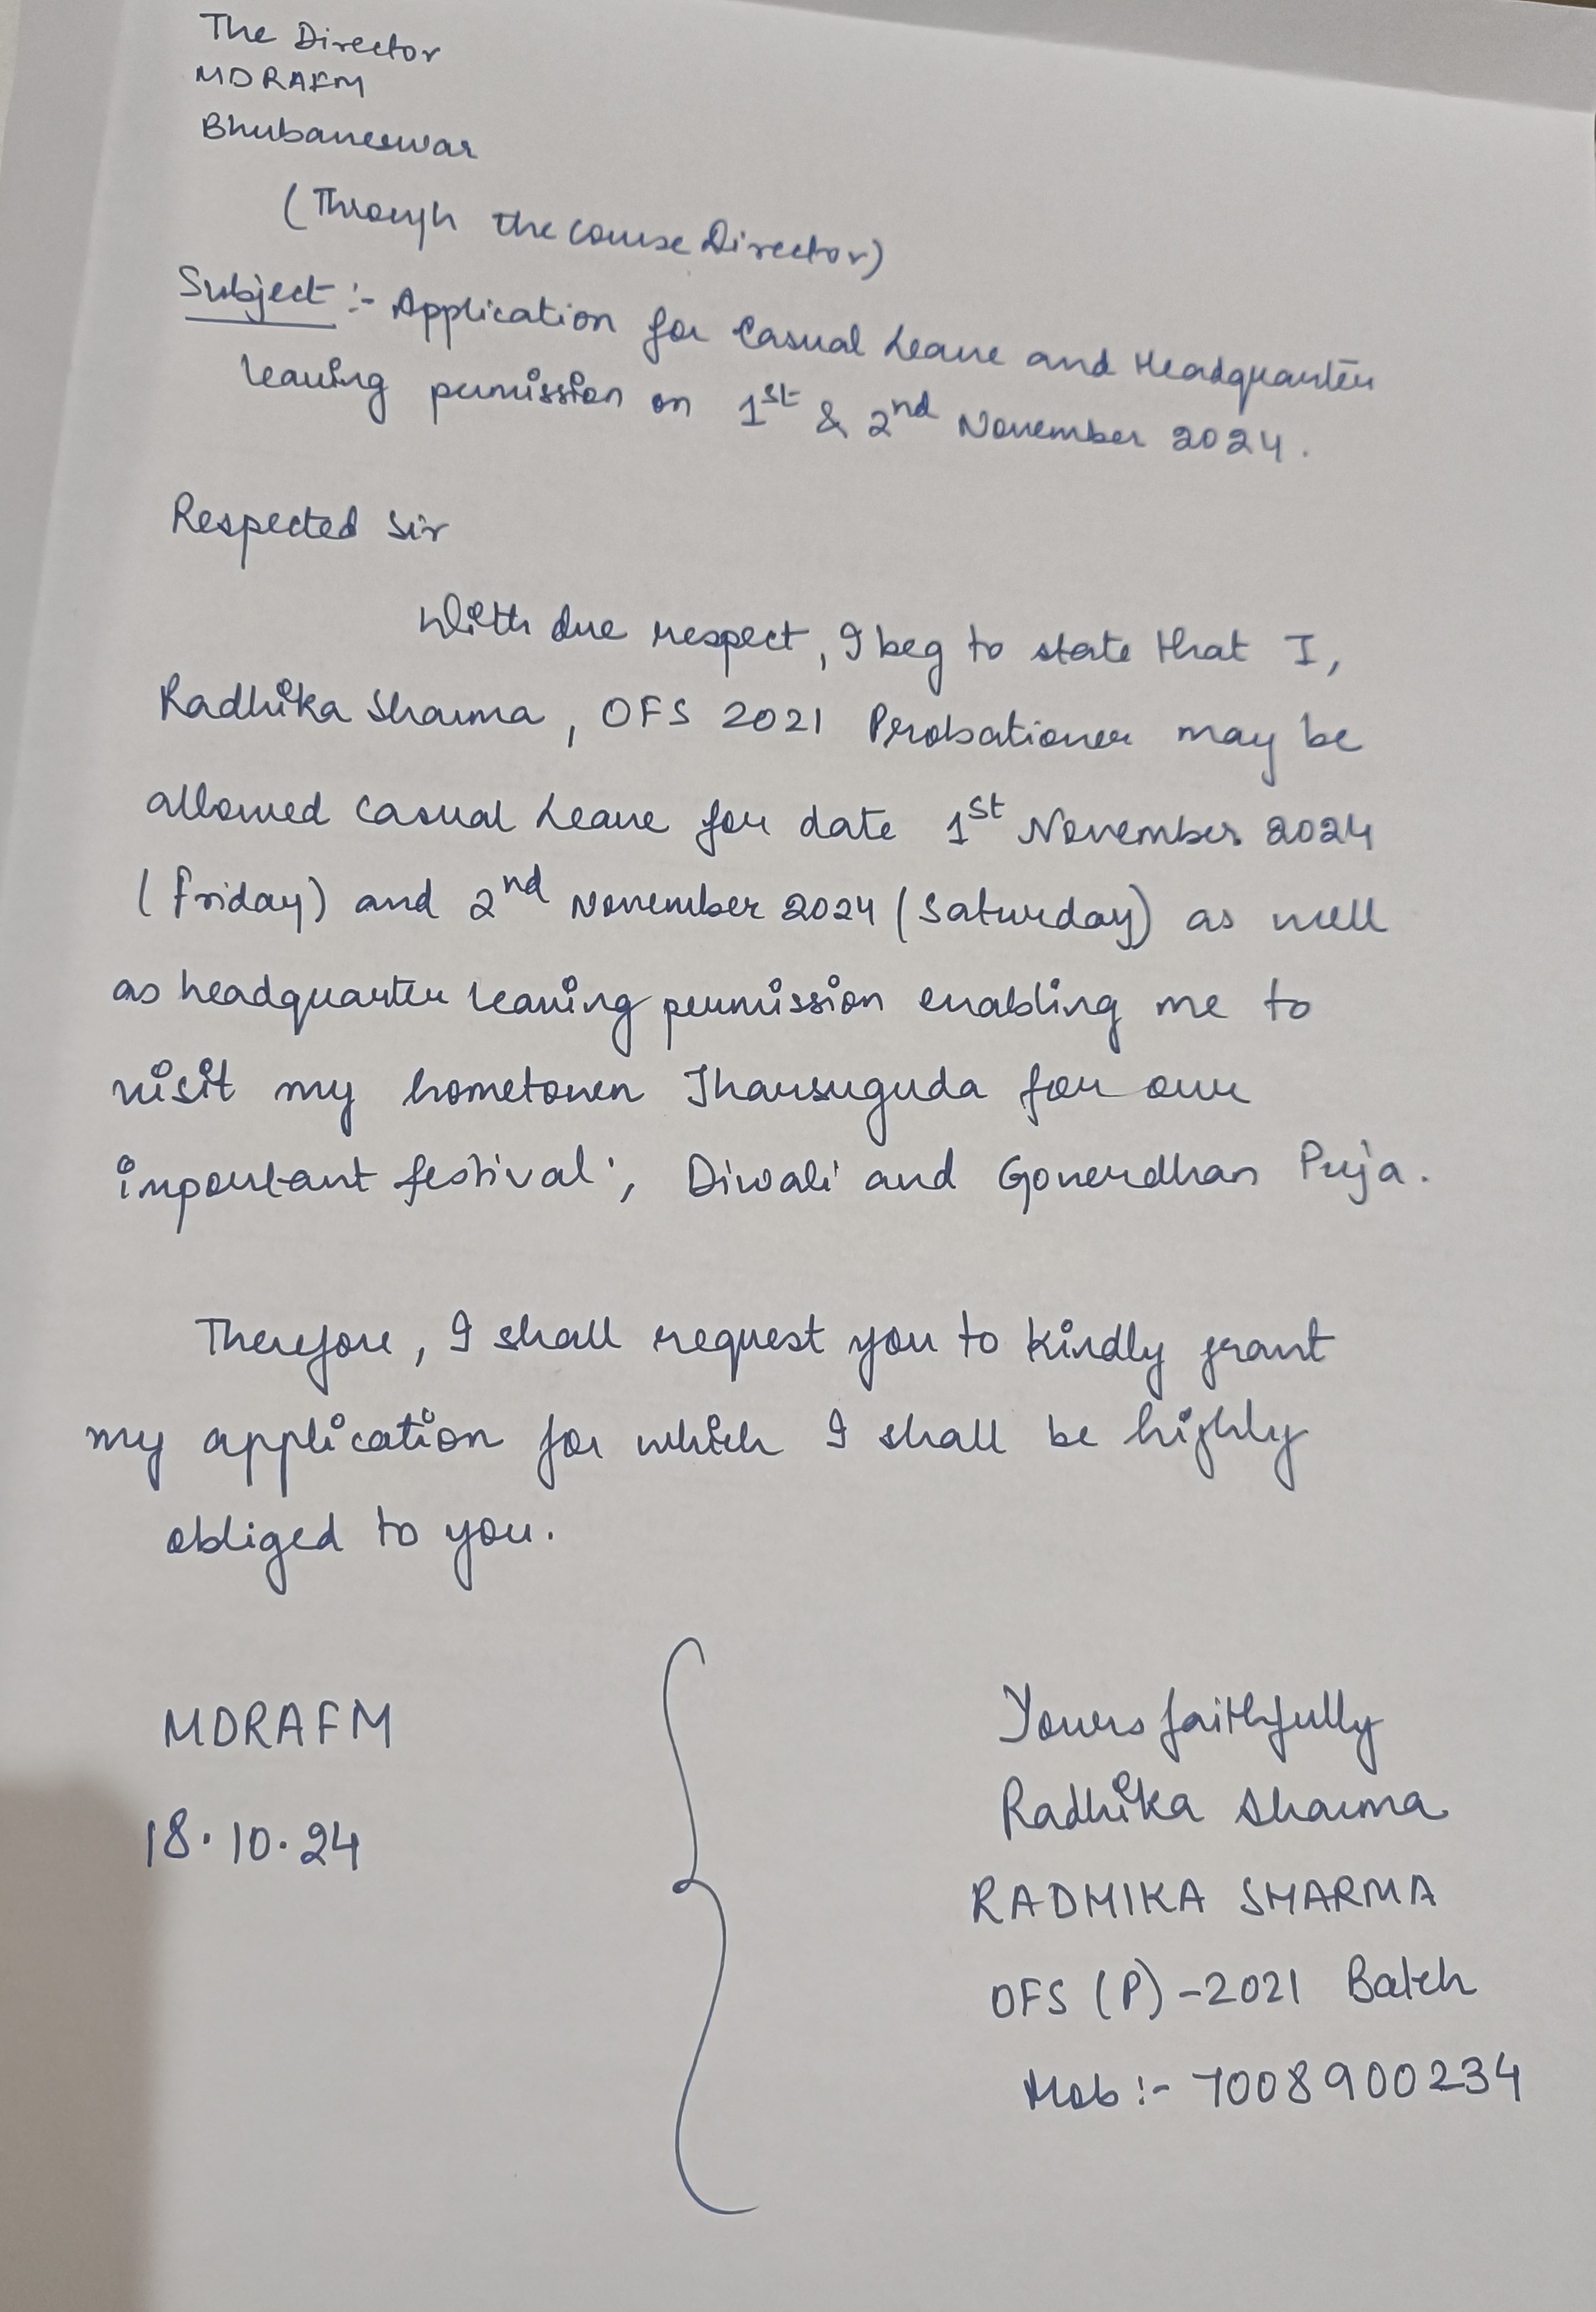 The Director
MDRAFM
Bhubaneswar
(Through the course Director)
Subject :- Application for Casual Leave and Headquarter
leaving permission on 1st & 2nd November 2024.
Respected Sir
With due respect, I beg to state that I,
Radhika Sharma, OFS 2021 Probationer may be
allowed Casual Leave for date 1st November 2024
(Friday) and 2nd November 2024 (Saturday) as well
as headquarter leaving permission enabling me to
visit my hometown Jharsuguda for our
important festival ; Diwali and Goverdhan Puja.
Therefore, I shall request you to kindly grant
my application for which I shall be highly
obliged to you.
MDRAFM
18.10.24
Yours faithfully
Radhika Sharma
RADHIKA SHARMA
OFS (P) -2021 Batch
Mob :- 7008900234